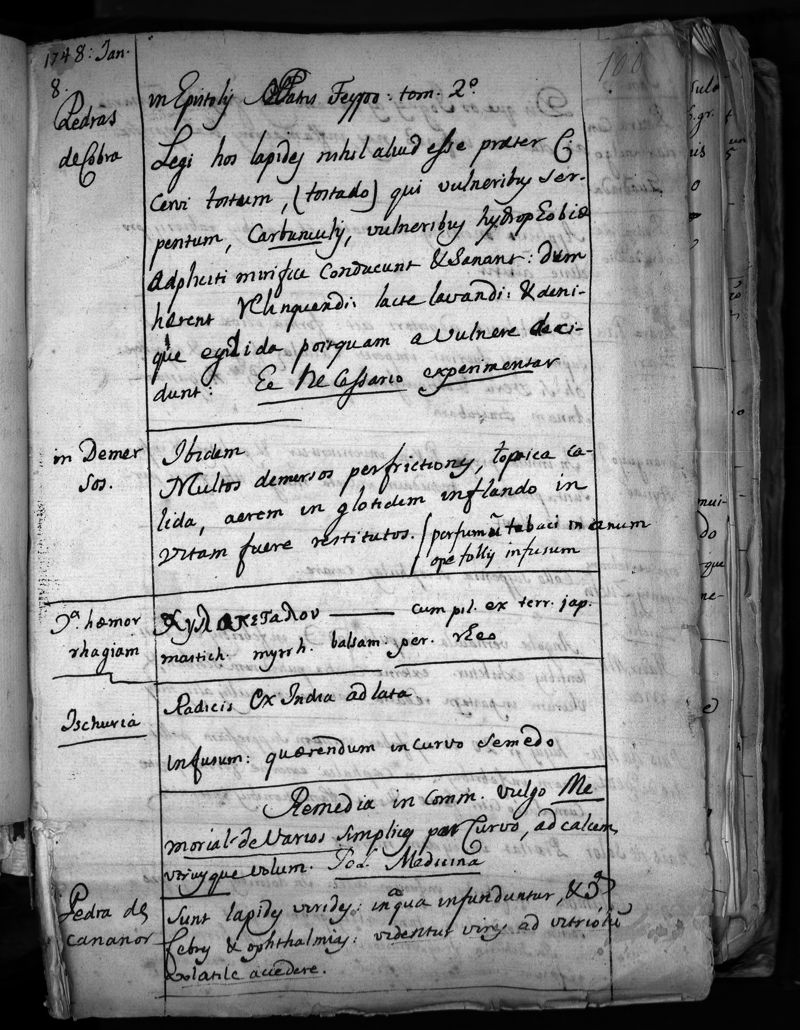 1748: Jan.
8.
100
Pedras
de Cobra
in Epistolis Patris Feyjoo: tom. 2º
Legi hos lapides nihil aliud esse præter C:
Cervi tostum, (tostado) qui vulneribus ser-
pentum, Carbunculis, vulneribus hydrophobiæ
adpliciti mirifice conducunt & sanant: dum
hærent relinquendi: lacte lavandi: & deni-
que egelida postquam a vulnere deci-
dunt: Ee necessario experimentar
in Demer
sos.
Ibidem
Multos demersos perfrictiones, topica ca-
lida, aerem in glotidem inflando in
vitam fuere restitutos. perfumũ tabaci in anum
ope follis infusum
hæmor
rhagiam
cum pil. ex terr. jap.
mastich. myrrh. balsam. per. rheo
Ischuria
Radicis ex India adlata
infusum: quærendum in Curvo Semedo
Remedia in Comm. vulgo Me
morial de Varios simplices por Curvo, ad calcem
volum. Medicina
Pedra de
Cananor
Sunt lapides virides: in qua infunduntur, &
febres & ophthalmias: videntur vires ad vitriolũ
volatile accedere.